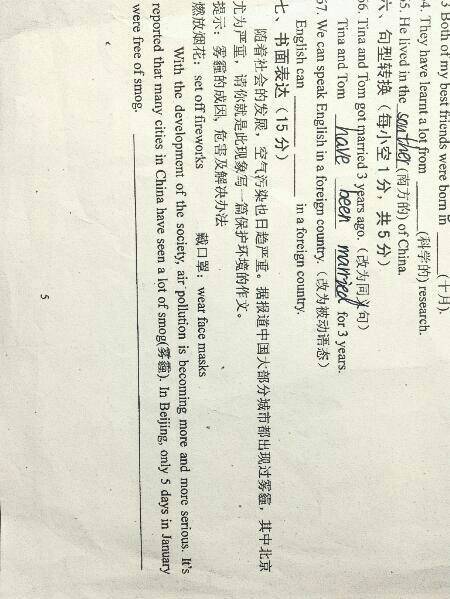 3 Both of my best friends were born in ______(十月).
4. They have learnt a lot from ______(科学的) research.
5. He lived in the southern(南方的) of China.
六、句型转换（每小空 1 分，共 5 分）
56. Tina and Tom got married 3 years ago.（改为同义句）
Tina and Tom have been married for 3 years.
57. We can speak English in a foreign country.（改为被动语态）
English can ______ ______ in a foreign country.
七、书面表达（15 分）
随着社会的发展，空气污染也日趋严重。据报道中国大部分城市都出现过雾霾，其中北京
尤为严重，请你就此现象写一篇保护环境的作文。
提示：雾霾的成因，危害及解决办法
燃放烟花：set off fireworks 戴口罩：wear face masks
With the development of the society, air pollution is becoming more and more serious. It's
reported that many cities in China have seen a lot of smog(雾霾). In Beijing, only 5 days in January
were free of smog.
5